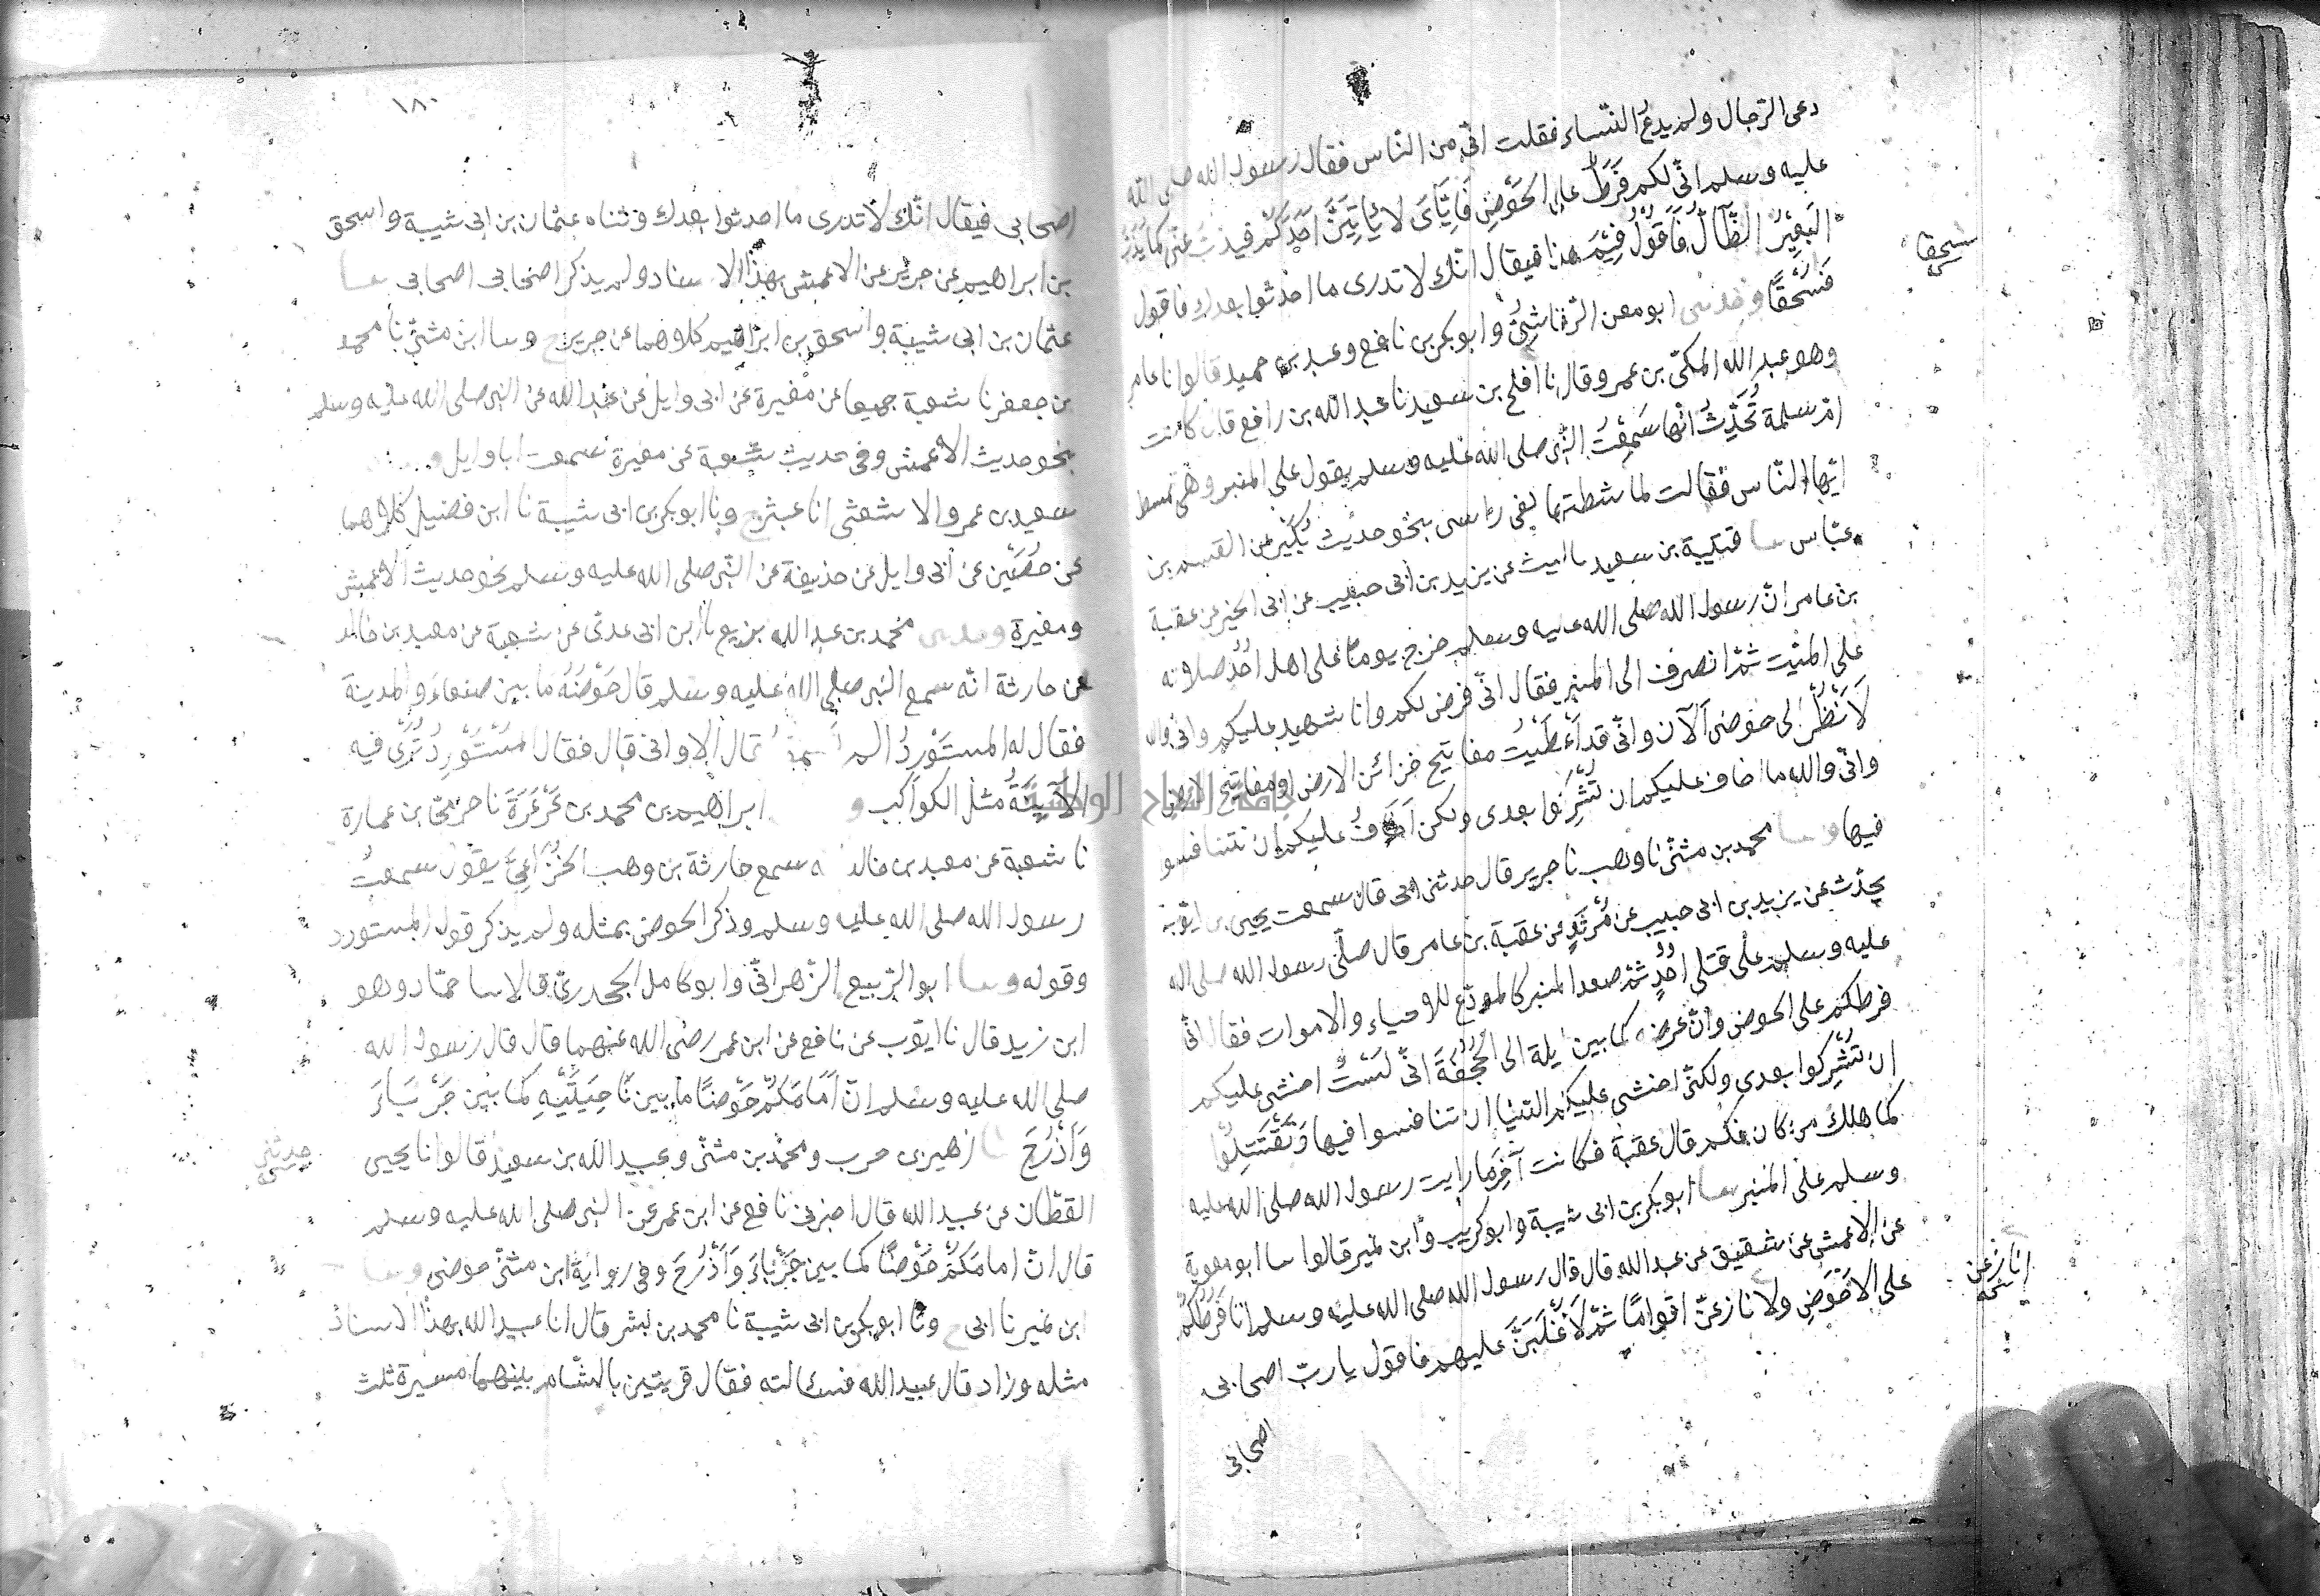 دعى الرّجال ولم يدع النّساء فقلت انّي من النّاس فقال رسول الله صلى الله
عليه وسلم انّي لكم فَرَطٌ على الحَوْضِ فَاِيَّايَ لا يَأتِيَنَّ اَحَدُكُم فيذبّ عنّي كما يُذَبُّ
البَعِيْرُ الضَّالُّ فَاَقُوْلُ فِيْمَ هذا فيقال انّك لا تدرى ما احدثوا بعدك فاقول
سحقا
فَسُحْقًا وحدثنى ابو معن الرّقاشِىُّ وابو بكر بن نافع وعبد بن حميد قالوا نا عامر
وهو عبد الله المكىّ بن عمرو قال نا افلح بن سعيد نا عبد الله بن رافع قال كانت
امّ سلمة تُحَدِّثُ انّها سَمِعَتْ النّبى صلى الله عليه وسلم يقول على المنبر وهى تمتشط
ايّها النّاس فقالت لماشطتها لفى راسى بنحو حديث بُكَيْر عن القسم بن
عبّاس حدثنا قتيبة بن سعيد نا ليث عن يزيد بن ابى حبيب عن ابى الخير عن عقبة
بن عامر انّ رسول الله صلى الله عليه وسلم خرج يوماً على اهل اُحُد صلاته
على الميّت ثمّ انصرف الى المنبر فقال انّي فرض لكم وانا شهيد عليكم وانّى والله
لَاَنْظُرُ الى حوضى الآن وانّي قد اُعْطِيْتُ مفاتيح خزائن الارض او مفاتيح الارض
وانّي والله ما اخاف عليكم ان تُشْرِكُوا بعدى ولكن اَخَافُ عليكم ان تتنافسوا
فيها وحدثنا محمد بن مثنّى نا وهب نا جرير قال حدثنى ابى قال سمعت يحيى بن ايّوب
يحدّث عن يزيد بن ابى حبيب عن مَرْثَدٍ عن عقبة بن عامر قال صلّى رسول الله صلى الله
عليه وسلم على قتلى اُحُدٍ ثمّ صعد المنبر كالمودّع للاحياء والاموات فقال انّي
فرطكم على الحوض وانّ عرضه كما بين ايلة الى الجُحْفَةَ انّي لَسْتُ اخشى عليكم
ان تُشْرِكوا بعدى ولكنّى اخشى عليكم الدّنيا ان تنافسوا فيها وَتَقْتَتِلُوا
كما هلك من كان قبلكم قال عقبة فكانت آخِرَ ما رايت رسول الله صلى الله عليه
وسلم على المنبر حدثنا ابو بكر بن ابى شيبة وابو كريب وابن نمير قالوا نا ابو معوية
عن الاعمش عن شقيق عن عبد الله قال قال رسول الله صلى الله عليه وسلم انا فَرَطُكُمْ
على الاحَوْضِ ولانازعنّ اقوامًا ثُمّ لَاُغْلَبَنَّ عليهم فاقول يا ربّ اصحابى
اصحابى
١٨٠
اصحابى فيقال انّك لا تدرى ما احدثوا بعدك وثناه عثمان بن ابى شيبة واسحق
بن ابراهيم عن جرير عن الاعمش بهذا الاسناد ولم يذكر اصحابى اصحابى حدثنا
عثمان بن ابى شيبة واسحق بن ابراهيم كلاهما عن جرير ح وحدثنا ابن مثنّى نا محمد
بن جعفر نا شعبة جميعا عن مغيرة عن ابى وايل عن عبد الله عن النبى صلى الله عليه وسلم
بنحو حديث الاعمش وفى حديث شعبة عن مغيرة سمعت ابا وايل
سعيد بن عمرو الاشعثى انا عبثر ح ونا ابو بكر بن ابى شيبة نا ابن فضيل كلاهما
عن حُصَيْن عن ابى وايل عن حذيفة عن النّبى صلى الله عليه وسلم نحو حديث الاعمش
ومغيرة وحدثنى محمد بن عبد الله بزيع نا ابن ابى عدىّ عن شعبة عن معبد بن خالد
عن حارثة انّه سمع النبى صلى الله عليه وسلم قال حَوْضُهُ ما بين صنعاء والمدينة
فقال له المستَوْرِدُ الم تسمعه قال الاوانى قال لا فقال المُسْتَوْرِدُ تُرٰى فيه
الآنِيَةُ مثل الكواكب ابراهيم بن محمد بن عَرْعَرَةَ نا حرمىّ بن عمارة
نا شعبة عن معبد بن خالد انه سمع حارثة بن وهب الخُزَاعِيَّ يقول سمعتُ
رسول الله صلى الله عليه وسلم وذكر الحوض بمثله ولم يذكر قول المستورد
وقوله وحدثنا ابو الرّبيع الزّهرانىّ وابو كامل الجحدرىّ قالا نا حمّاد وهو
ابن زيد قال نا ايّوب عن نافع عن ابن عمر رضى الله عنهما قال قال رسول الله
صلى الله عليه وسلم انّ اَمَامَكُمْ حَوْضًا ما بين نَاحِيَتَيْهِ كما بين جَرْبَاءَ
حدثنى
وَاَذْرُحَ حدثنا زهير بن حرب ومحمّد بن مثنّى وعبيد الله بن سعيد قالوا نا يحيى
القطّان عن عبيد الله قال اخبرنى نافع عن ابن عمر عن النبى صلى الله عليه وسلم
قال انّ امامَكُمْ حَوْضًا كما بين جَرْبَاءَ وَاَذْرُحَ وفى رواية ابن مثنّى حوضى وحدثنا
ابن نمير نا ابى ح ونا ابو بكر بن ابى شيبة نا محمد بن بشر قال انا عبيد الله بهذا الاسناد
مثله وزاد قال عبيد الله فسالته فقال قريتين بالشّام بينهما مسيرة ثلث